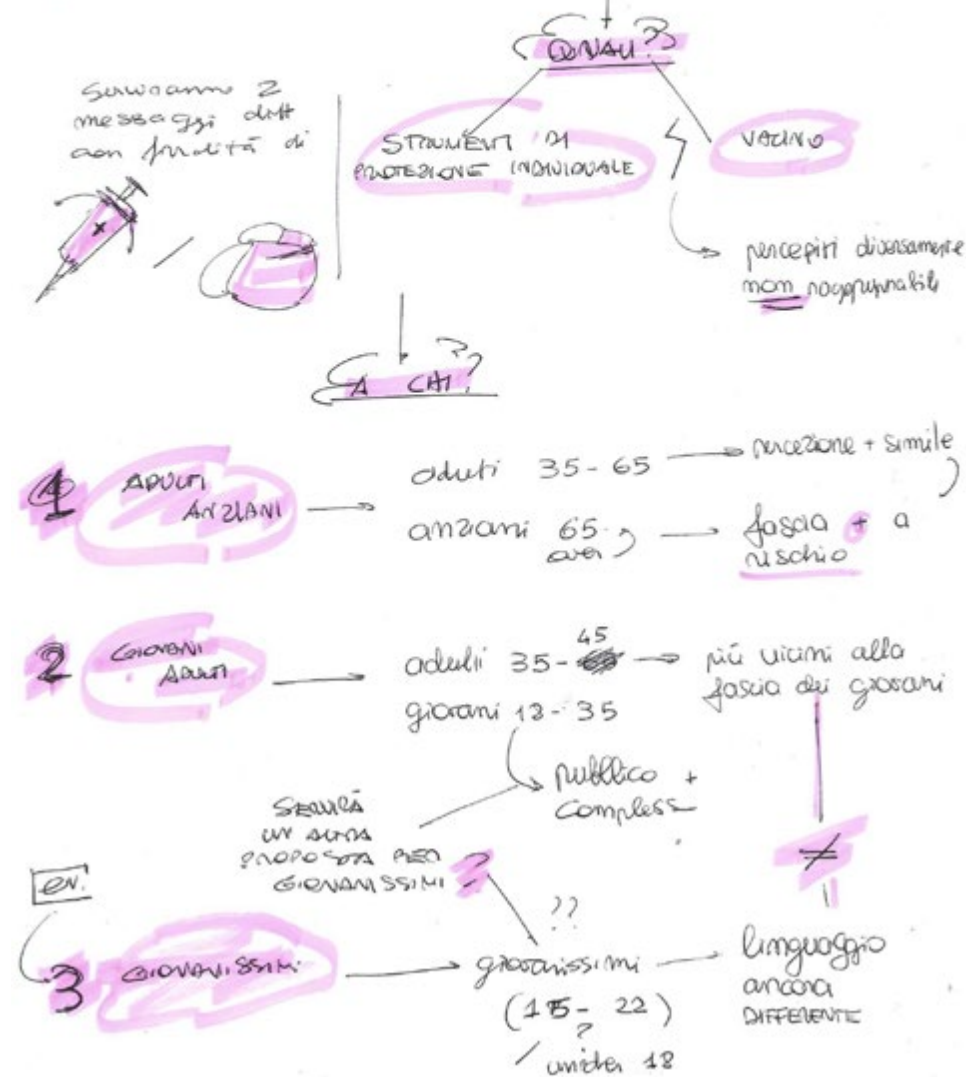 QUALI?
Serviranno 2
messaggi diff
con finalità di
STRUMENTI DI
PROTEZIONE INDIVIDUALE
VACINO
percepiti diversamente
non raggruppabili
A CHI?
1 ADULTI
ANZIANI
aduti 35-65
percezione + simile
anziani 65
over
fascia + a
rischio
2 GIOVANI
ADULTI
45
adulti 35-
più vicini alla
fascia dei giovani
giovani 18-35
pubblico +
compless
SERVIRÀ
UN ALTRA
PROPOSTA PER I
GIOVANISSIMI ?
≠
ev.
??
3 GIOVANISSIMI
giovanissimi
(15-22)
?
/ under 18
linguaggio
ancora
DIFFERENTE